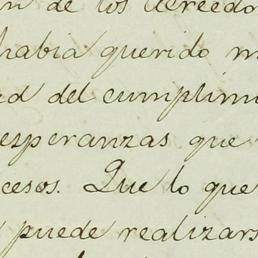 n de los acreedo
habia querido m
d del cumplimi
esperanzas que
cesos. Que lo que
puede realizars